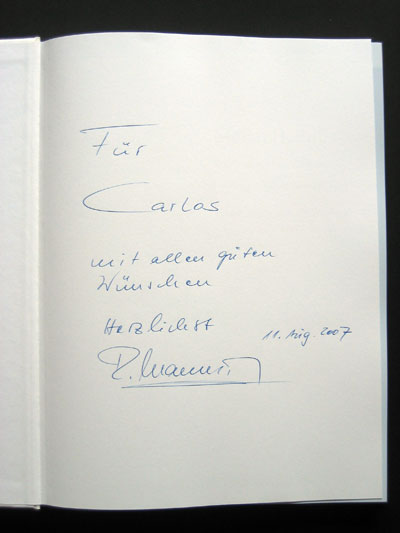 Für
Carlos
mit allen guten
Wünschen
Herzlichst
11. Aug. 2007
R.